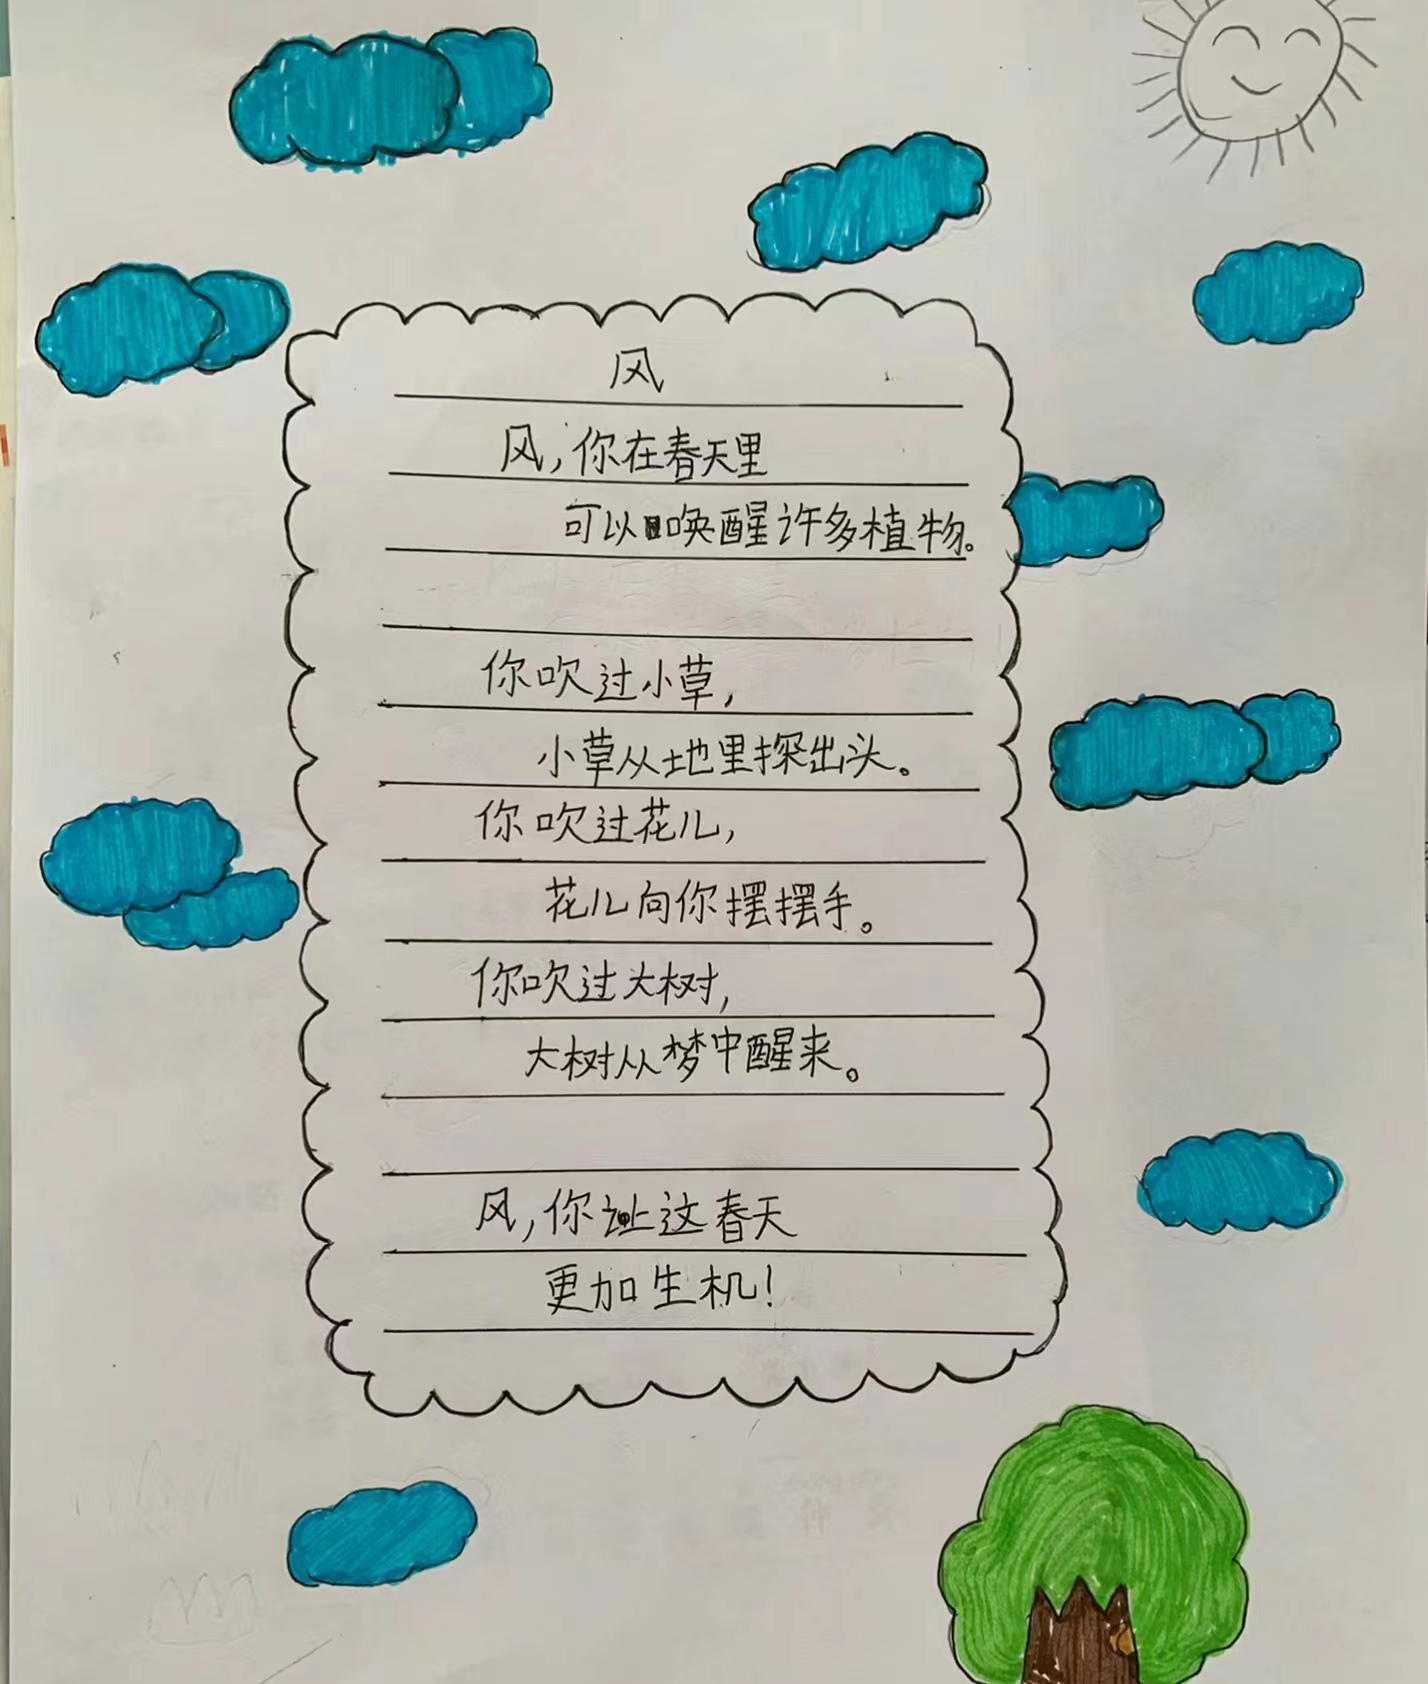 风
风,你在春天里
可以唤醒许多植物。
你吹过小草,
小草从地里探出头。
你吹过花儿,
花儿向你摆摆手。
你吹过大树,
大树从梦中醒来。
风,你让这春天
更加生机!